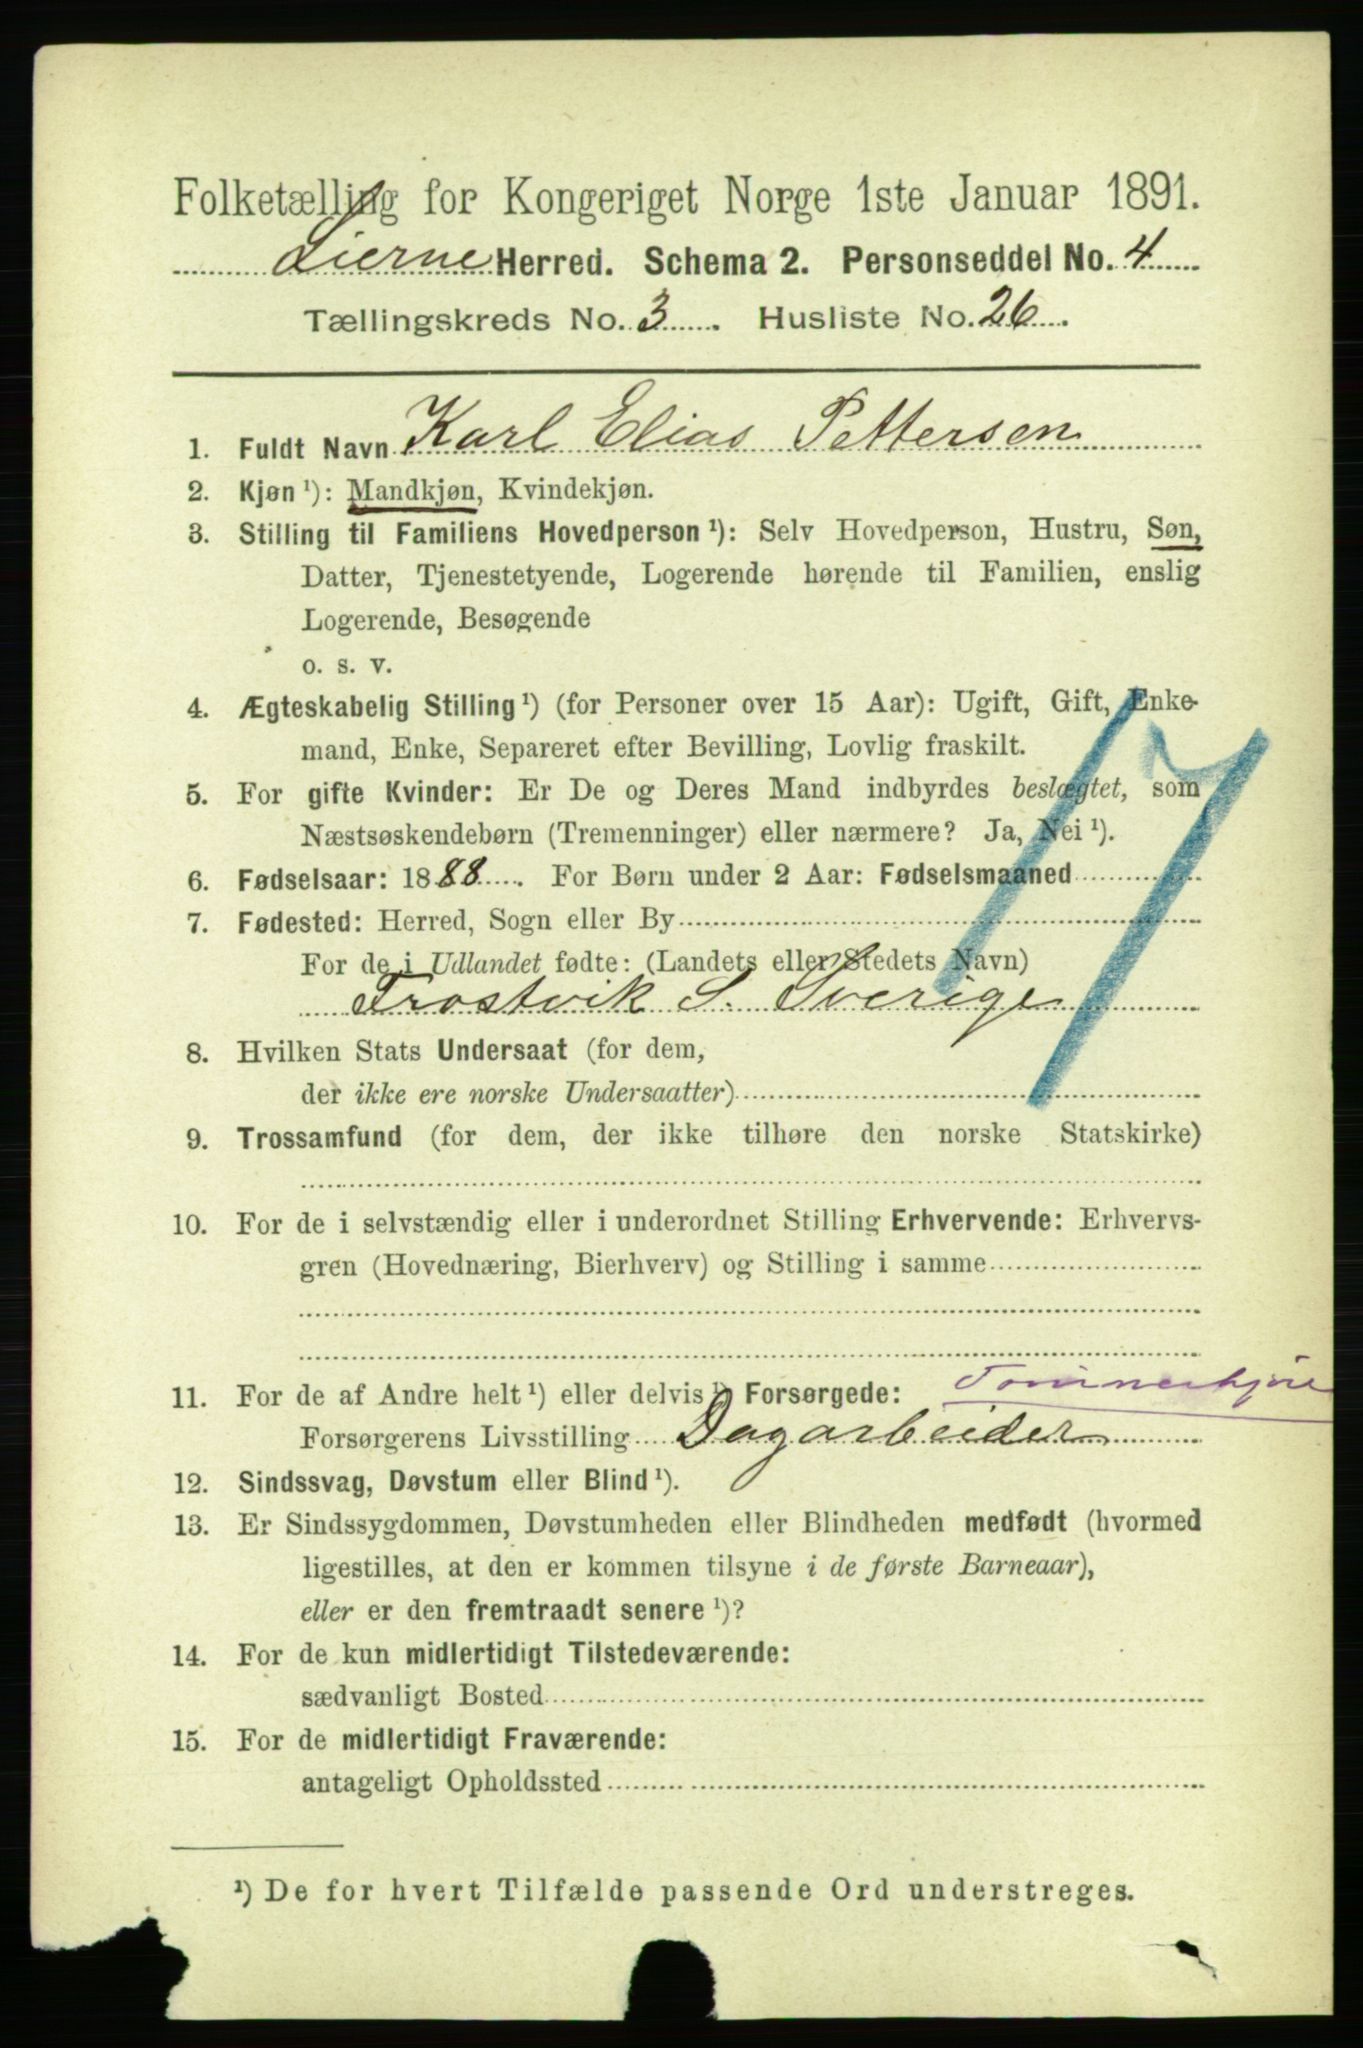 Folketælling for Kongeriget Norge 1ste Januar 1891.
Lierne Herred. Schema 2. Personseddel No. 4
Tællingskreds No. 3. Husliste No. 26.
1. Fuldt Navn Karl Elias Pettersen
2. Kjøn ¹): Mandkjøn, Kvindekjøn.
3. Stilling til Familiens Hovedperson ¹): Selv Hovedperson, Hustru, Søn,
Datter, Tjenestetyende, Logerende hørende til Familien, enslig
Logerende, Besøgende
o. s. v.
4. Ægteskabelig Stilling ¹) (for Personer over 15 Aar): Ugift, Gift, Enke-
mand, Enke, Separeret efter Bevilling, Lovlig fraskilt.
5. For gifte Kvinder: Er De og Deres Mand indbyrdes beslægtet, som
Næstsøskendebørn (Tremenninger) eller nærmere? Ja, Nei ¹).
6. Fødselsaar: 1888. For Børn under 2 Aar: Fødselsmaaned
7. Fødested: Herred, Sogn eller By
For de i Udlandet fødte: (Landets eller Stedets Navn)
Frostvik S. Sverige
8. Hvilken Stats Undersaat (for dem,
der ikke ere norske Undersaatter)
9. Trossamfund (for dem, der ikke tilhøre den norske Statskirke)
10. For de i selvstændig eller i underordnet Stilling Erhvervende: Erhvervs-
gren (Hovednæring, Bierhverv) og Stilling i samme
11. For de af Andre helt ¹) eller delvis ¹) Forsørgede: Tømmerkjøre
Forsørgerens Livsstilling Dagarbeider
12. Sindssvag, Døvstum eller Blind ¹).
13. Er Sindssygdommen, Døvstumheden eller Blindheden medfødt (hvormed
ligestilles, at den er kommen tilsyne i de første Barneaar),
eller er den fremtraadt senere ¹)?
14. For de kun midlertidigt Tilstedeværende:
sædvanligt Bosted
15. For de midlertidigt Fraværende:
antageligt Opholdssted
¹) De for hvert Tilfælde passende Ord understreges.